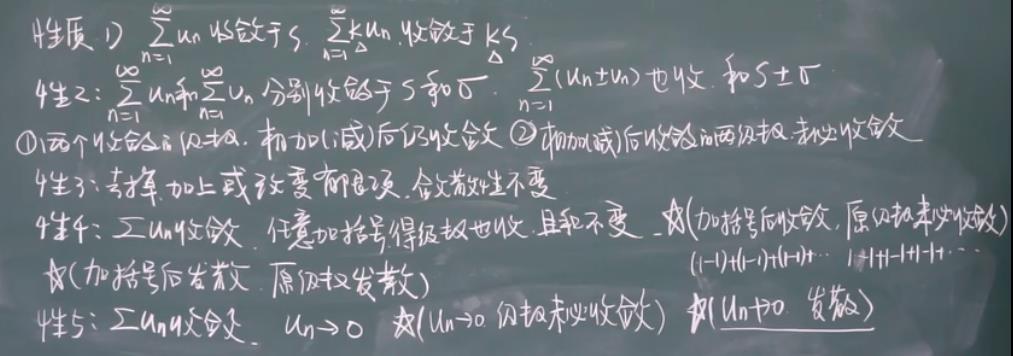 性质1) ∑_{n=1}^{∞} un 收敛于S. ∑_{n=1}^{∞} kun 收敛于 kS.
性2: ∑_{n=1}^{∞} un和∑_{n=1}^{∞} υn 分别收敛于 S和σ. ∑_{n=1}^{∞}(un±υn)也收. 和S±σ
①两个收敛的级数. 相加(减)后仍收敛 ②相加(减)后收敛的两级数.未必收敛
性3:去掉.加上或改变有限项.敛散性不变
性4: ∑un收敛. 任意加括号得级数也收.且和不变. ☆(加括号后收敛.原级数未必收敛)
(1-1)+(1-1)+(1-1)+… 1-1+1-1+1-1+…
☆(加括号后发散.原级数发散)
性5: ∑un收敛. un→0 ☆(un→0. 级数未必收敛) ☆(un↛0. 发散)